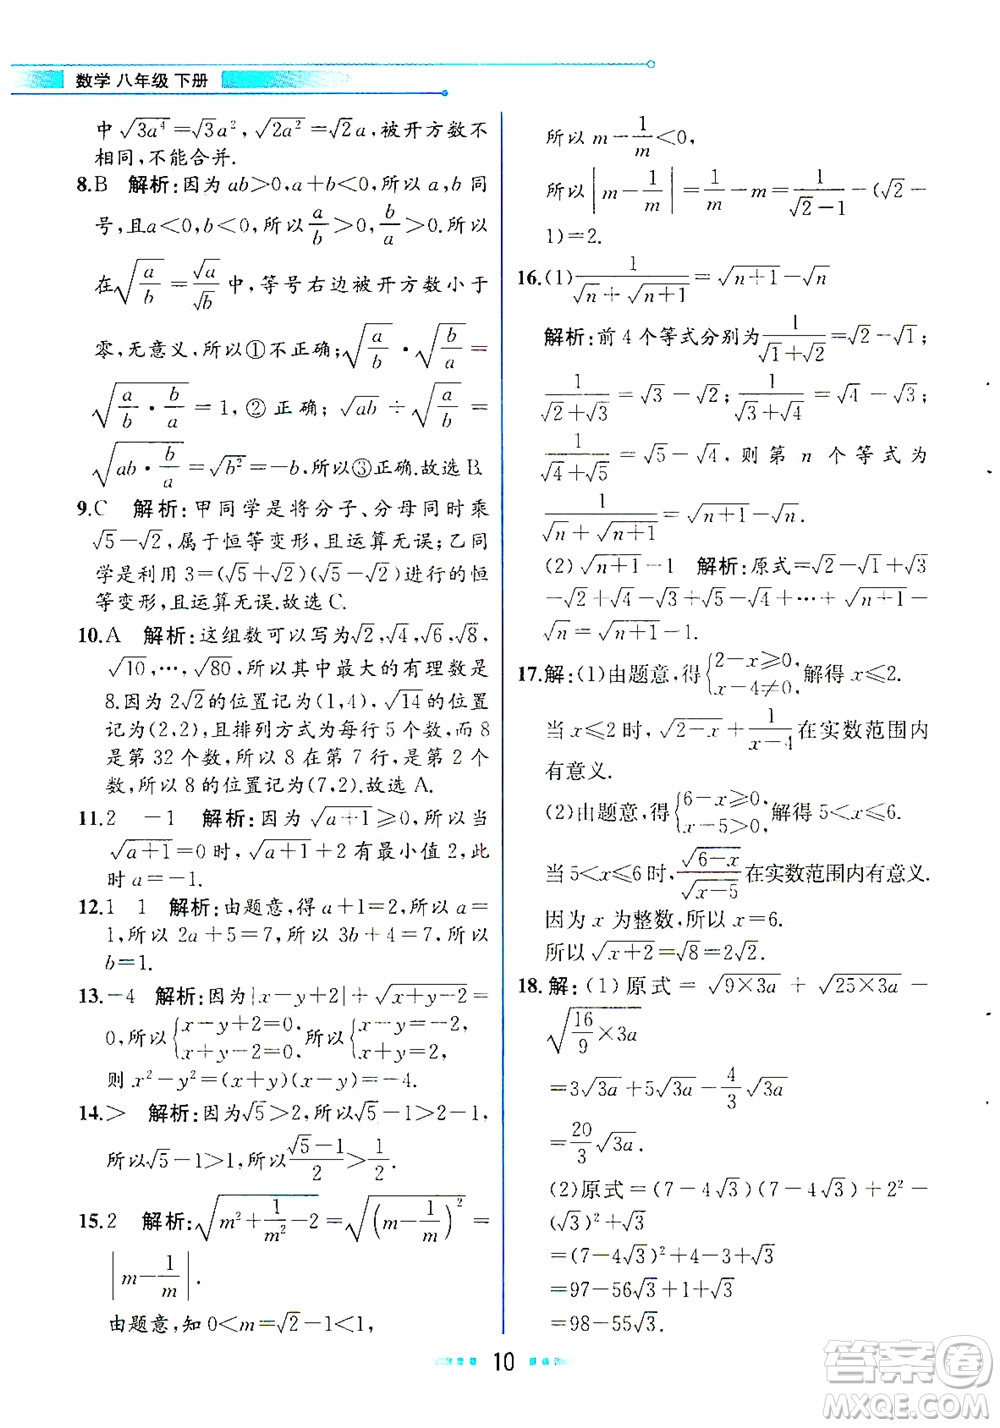 数学 八年级 下册
中√(3a⁴)=√3a²,√(2a²)=√2a,被开方数不
相同,不能合并.
8.B 解析:因为 ab>0,a+b<0,所以 a,b 同
号,且a<0,b<0,所以 a/b>0,b/a>0.所以
在√(a/b)=√a/√b 中,等号右边被开方数小于
零,无意义,所以①不正确;√(a/b)·√(b/a)=
√(a/b·b/a)=1,②正确;√(ab)÷√(a/b)=
√(ab·b/a)=√(b²)=-b,所以③正确.故选 B.
9.C 解析:甲同学是将分子、分母同时乘
√5-√2,属于恒等变形,且运算无误;乙同
学是利用 3=(√5+√2)(√5-√2)进行的恒
等变形,且运算无误.故选 C.
10.A 解析:这组数可以写为√2,√4,√6,√8,
√10,…,√80,所以其中最大的有理数是
8.因为 2√2的位置记为(1,4),√14的位置
记为(2,2),且排列方式为每行 5 个数,而 8
是第 32 个数,所以 8 在第 7 行,第 2 个数,
所以 8 的位置记为(7,2).故选 A.
11.2 -1 解析:因为√(a+1)≥0,所以当
√(a+1)=0 时,√(a+1)+2 有最小值 2,此
时 a=-1.
12.1 1 解析:由题意,得 a+1=2,所以 a=
1,所以 2a+5=7,所以 3b+4=7,所以
b=1.
13.-4 解析:因为|x-y+2|+√(x+y-2)=
0,所以{x-y+2=0, x+y-2=0. 所以{x-y=-2, x+y=2,
则 x²-y²=(x+y)(x-y)=-4.
14.> 解析:因为√5>2,所以√5-1>2-1,
所以√5-1>1,所以(√5-1)/2>1/2.
15.2 解析:√(m²+1/m²-2)=√((m-1/m)²)=
|m-1/m|.
由题意,知 0<m=√2-1<1,
所以 m-1/m<0,
所以|m-1/m|=1/m-m=1/(√2-1)-(√2-
1)=2.
16.(1)1/(√n+√(n+1))=√(n+1)-√n
解析:前 4 个等式分别为1/(√1+√2)=√2-√1;
1/(√2+√3)=√3-√2;1/(√3+√4)=√4-√3;
1/(√4+√5)=√5-√4,则第 n 个等式为
1/(√n+√(n+1))=√(n+1)-√n.
(2)√(n+1)-1 解析:原式=√2-√1+√3
-√2+√4-√3+√5-√4+…+√(n+1)-
√n=√(n+1)-1.
17.解:(1)由题意,得{2-x≥0, x-4≠0, 解得 x≤2.
当 x≤2 时,√(2-x)+1/(x-4)在实数范围内
有意义.
(2)由题意,得{6-x≥0, x-5>0, 解得 5<x≤6.
当 5<x≤6 时,√(6-x)/√(x-5)在实数范围内有意义.
因为 x 为整数,所以 x=6.
所以√(x+2)=√8=2√2.
18.解:(1)原式=√(9×3a)+√(25×3a)-
√(16/9×3a)
=3√(3a)+5√(3a)-4/3√(3a)
=20/3√(3a).
(2)原式=(7-4√3)(7-4√3)+2²-
(√3)²+√3
=(7-4√3)²+4-3+√3
=97-56√3+1+√3
=98-55√3.
10
答案圈
MXQE.COM